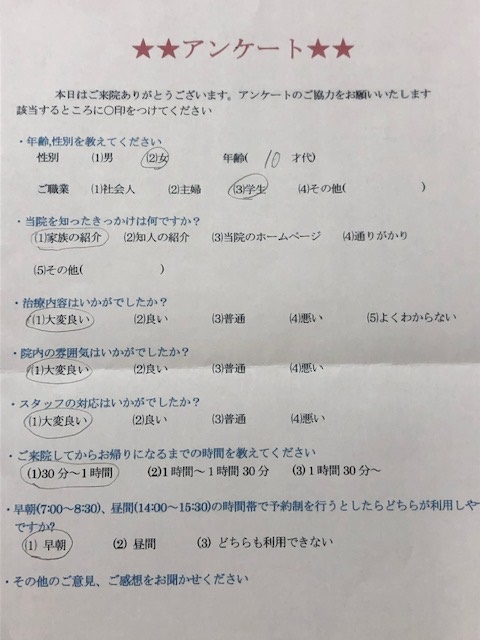 ★★アンケート★★
本日はご来院ありがとうございます。アンケートのご協力をお願いいたします
該当するところに〇印をつけてください
・年齢,性別を教えてください
性別 (1)男 (2)女 年齢( 10 才代)
ご職業 (1)社会人 (2)主婦 (3)学生 (4)その他( )
・当院を知ったきっかけは何ですか？
(1)家族の紹介 (2)知人の紹介 (3)当院のホームページ (4)通りがかり
(5)その他( )
・治療内容はいかがでしたか？
(1)大変良い (2)良い (3)普通 (4)悪い (5)よくわからない
・院内の雰囲気はいかがでしたか？
(1)大変良い (2)良い (3)普通 (4)悪い
・スタッフの対応はいかがでしたか？
(1)大変良い (2)良い (3)普通 (4)悪い
・ご来院してからお帰りになるまでの時間を教えてください
(1)30分～1時間 (2)1時間～1時間30分 (3)1時間30分～
・早朝(7:00～8:30)、昼間(14:00～15:30)の時間帯で予約制を行うとしたらどちらが利用しや
ですか?
(1) 早朝 (2) 昼間 (3) どちらも利用できない
・その他のご意見、ご感想をお聞かせください